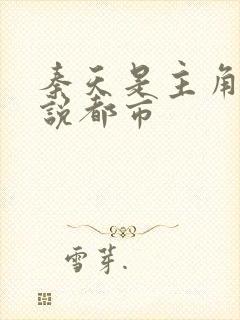 秦天是主角
説都市
雪芽.